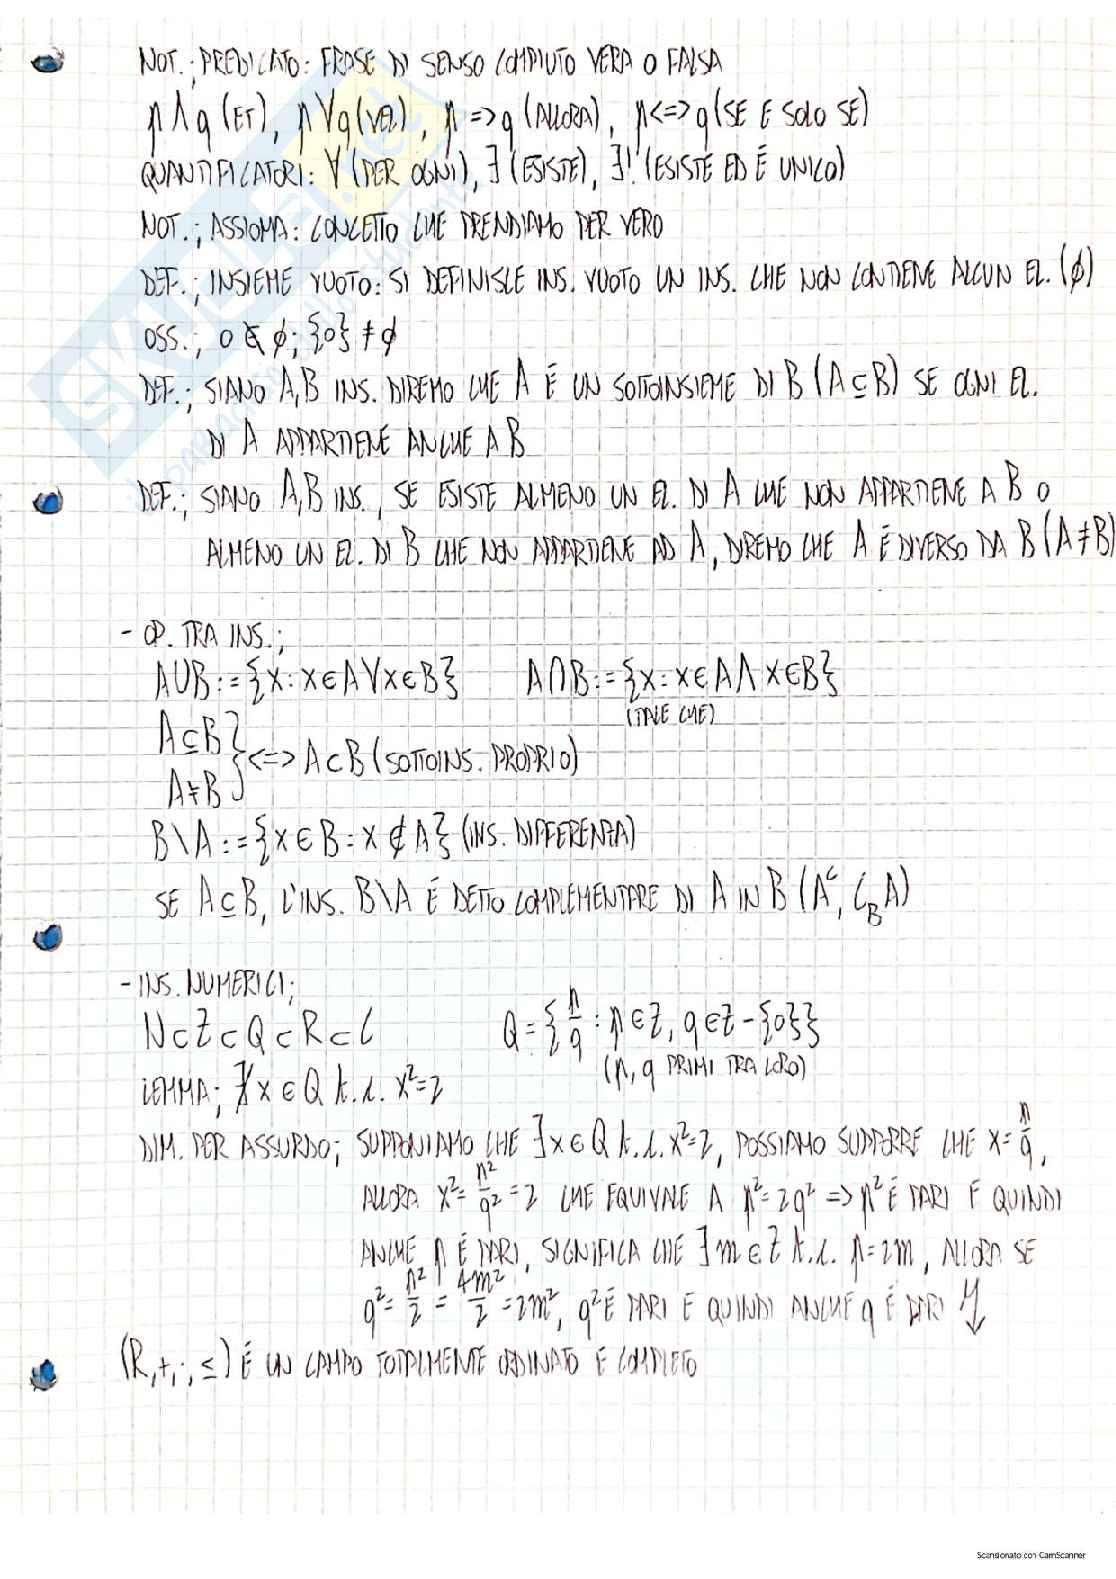 NOT.; PREDICATO: FRASE DI SENSO COMPIUTO VERA O FALSA
p∧q (ET), p∨q (VEL), p => q (ALLORA), p <=> q (SE E SOLO SE)
QUANTIFICATORI: ∀ (PER OGNI), ∃ (ESISTE), ∃! (ESISTE ED É UNICO)
NOT.; ASSIOMA: CONCETTO CHE PRENDIAMO PER VERO
DEF.; INSIEME VUOTO: SI DEFINISCE INS. VUOTO UN INS. CHE NON CONTIENE ALCUN EL. (∅)
OSS.; 0 ∉ ∅; {0} ≠ ∅
DEF.; SIANO A,B INS. DIREMO CHE A É UN SOTTOINSIEME DI B (A⊆B) SE OGNI EL.
DI A APPARTIENE ANCHE A B
DEF.; SIANO A,B INS., SE ESISTE ALMENO UN EL. DI A CHE NON APPARTIENE A B O
ALMENO UN EL. DI B CHE NON APPARTIENE AD A, DIREMO CHE A É DIVERSO DA B (A≠B)
- OP. TRA INS.;
A∪B:={x: x∈A∨x∈B} A∩B:={x: x∈A∧x∈B}
(TALE CHE)
A⊆B
A≠B } <=> A⊂B (SOTTOINS. PROPRIO)
B\A:={x∈B: x∉A} (INS. DIFFERENZA)
SE A⊆B, L'INS. B\A É DETTO COMPLEMENTARE DI A IN B (Aᶜ, C_B A)
- INS. NUMERICI;
N⊂Z⊂Q⊂R⊂C Q={p/q : p∈Z, q∈Z-{0}}
(p, q PRIMI TRA LORO)
LEMMA; ∄x∈Q t.c. x²=2
DIM. PER ASSURDO; SUPPONIAMO CHE ∃x∈Q t.c. x²=2, POSSIAMO SUPPORRE CHE x=p/q,
ALLORA x²=p²/q²=2 CHE EQUIVALE A p²=2q² => p² É PARI E QUINDI
ANCHE p É PARI, SIGNIFICA CHE ∃m∈Z t.c. p=2m, ALLORA SE
q²=p²/2=4m²/2=2m², q² É PARI E QUINDI ANCHE q É PARI ↯
(R,+,·,≤) É UN CAMPO TOTALMENTE ORDINATO E COMPLETO
Scansionato con CamScanner